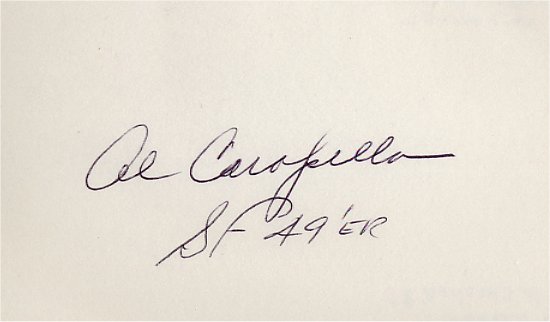 Al Carapella
SF 49'ER